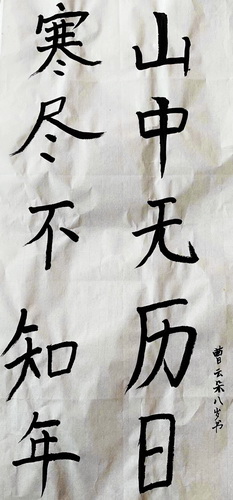 山中无历日
寒尽不知年
曹云朵八岁书